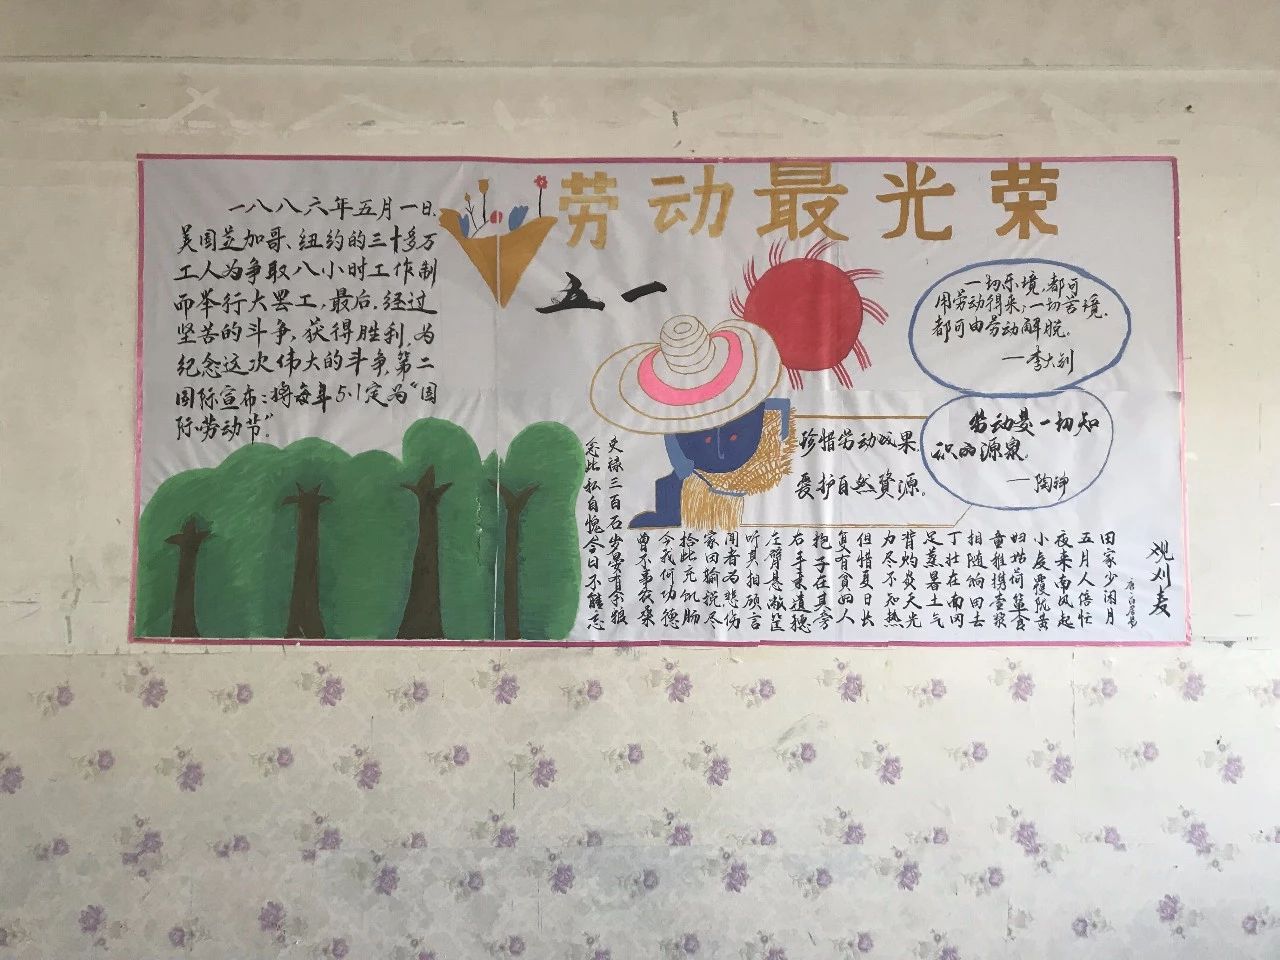 劳动最光荣
五一
一八八六年五月一日,
美国芝加哥、纽约的三十多万
工人为争取八小时工作制
而举行大罢工,最后,经过
坚苦的斗争,获得胜利,为
纪念这次伟大的斗争,第二
国际宣布:将每年5·1定为“国
际劳动节”。
一切乐境,都可
用劳动得来,一切苦境,
都可由劳动解脱。
—李大钊
劳动是一切知
识的源泉。
—陶铸
珍惜劳动成果,
爱护自然资源。
观刈麦
唐·白居易
田家少闲月
五月人倍忙
夜来南风起
小麦覆陇黄
妇姑荷箪食
童稚携壶浆
相随饷田去
丁壮在南冈
足蒸暑土气
背灼炎天光
力尽不知热
但惜夏日长
复有贫妇人
抱子在其旁
右手秉遗穗
左臂悬敝筐
听其相顾言
闻者为悲伤
家田输税尽
拾此充饥肠
今我何功德
曾不事农桑
吏禄三百石岁晏有余粮
念此私自愧今日不能忘